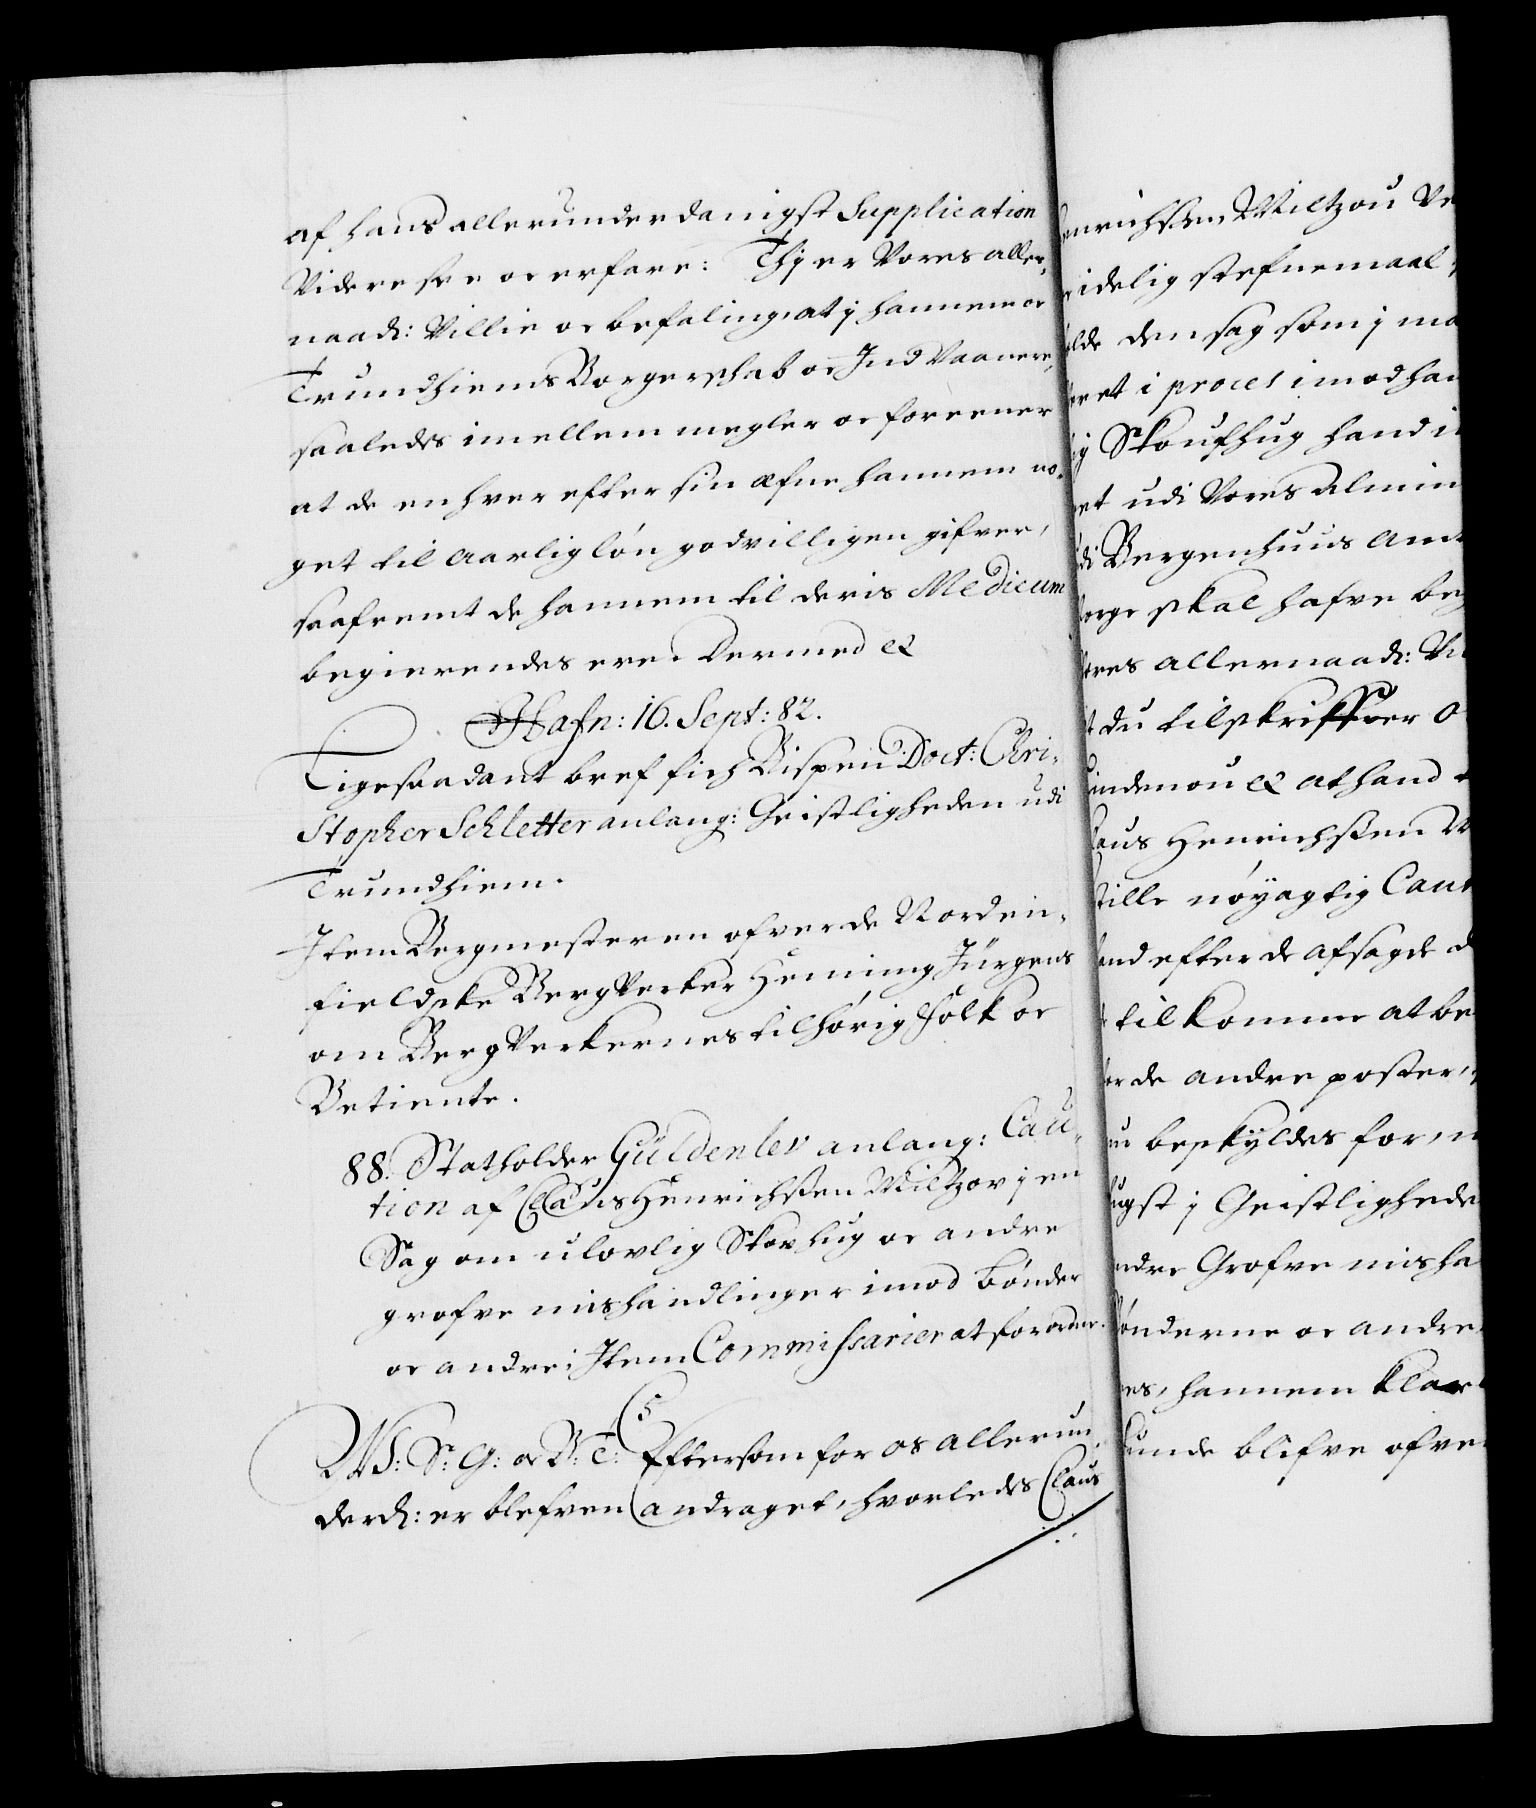 af hans allerunderdanigst Supplication
Videre see oc erfare: Thj er Vores aller-
naad: Villie oc befaling, at j hannem oc
Trundhiems Borgerschab oc Ind Vaanere,
saaledes imellem megler oc foreener
at de enhver efter sin æfne hannem no-
get til aarlig løn godvilligen gifver,
saafremt de hannem til deris Medicum
begierendes ere. Dermed &
Hafn: 16. Sept: 82.
Ligesaadant bref fich Bispen Doct: Chri-
stopher Schletter anlang: Geistligheden udi
Trundhiem.
Item Bergmesteren ofver de Norden-
fieldske BergVerker Henning Jürgens
om BergVerkernes tilhørig Folk oc
Betiente.
88. Statholder Güldenlev anlang: Cau-
tion af Claus Henrichssen Miltzov j en
Sag om ulovlig Skovhug oc andre
grofve mishandlinger imod bønder
oc andre; Item Commissarier at forordne.
C5
Vs: Sr: G: oc B: T: Eftersom for os allerun-
derd: er blefven andraget, hvorledes Claus
enrichssen Miltzou Ve
idelig stefnemaal
olde den sag som j ma
eret i proces imod han
ig Skoufhug hand i
et udi Vores Almin
di Bergenhuus Amt
orge skal hafve beg
ores allernaad: Vi
t du tilskriffver o
indenou & at hand
laus Henrichssen M
tille nøyagtig Caut
and efter de afsagde d
tilkomme at be
or de andre poster,
ou beskyldes for, n
ugst j Geistlighede
ndre Grofve misha
ønderne oc andre,
es, hannem klar
unde blifve ofve